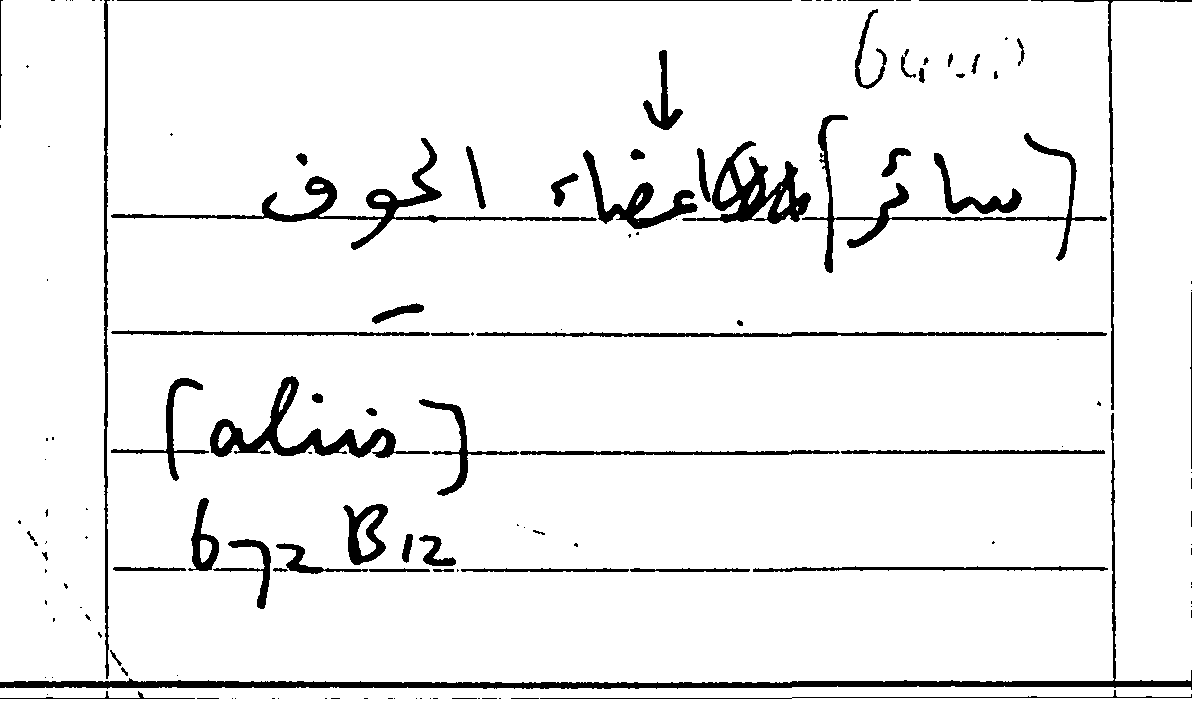 [سائر] اعضاء الجوف
[aliis]
672 B 12